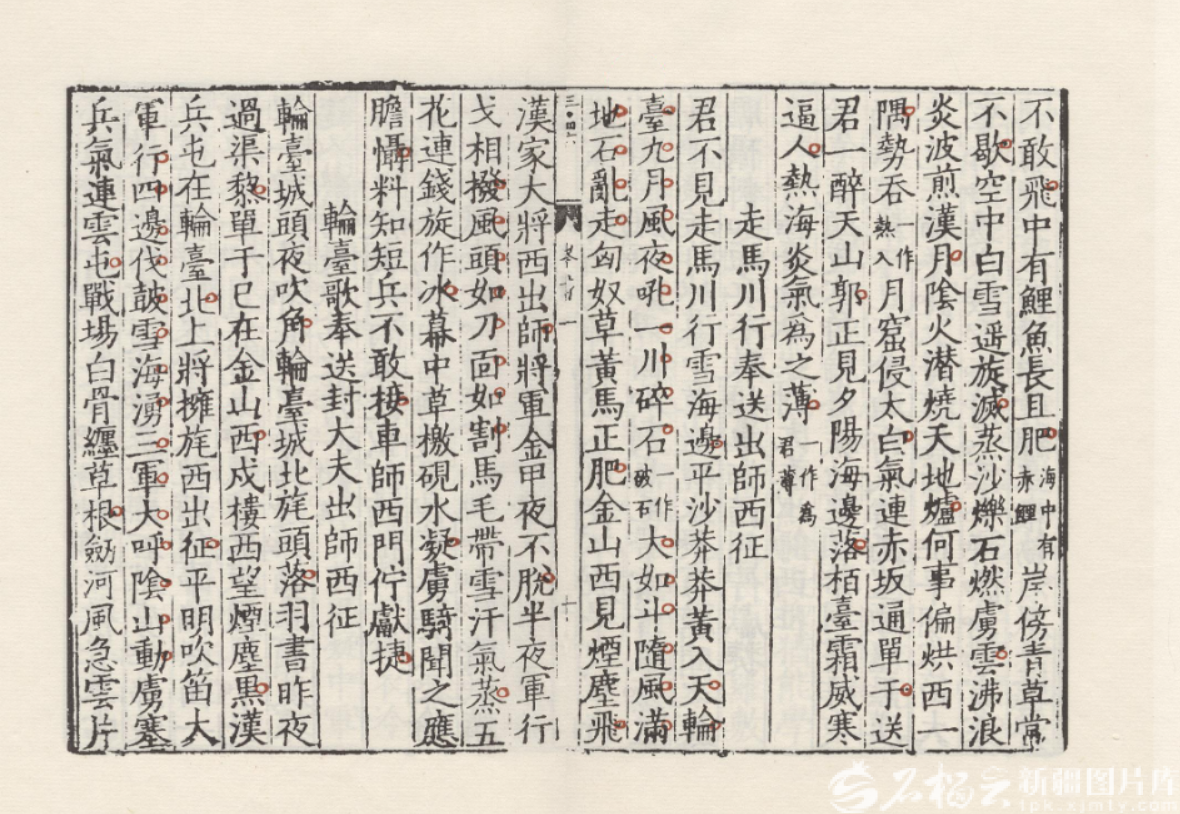 不敢飛中有鯉魚長且肥海中有赤鯉岸傍青草常
不歇空中白雪遥旋滅蒸沙爍石燃虜雲沸浪
炎波煎漢月陰火潜燒天地爐何事偏烘西一
隅勢吞一作熱入月窟侵太白氣連赤坂通單于送
君一醉天山郭正見夕陽海邊落栢臺霜威寒
逼人熱海炎氣爲之薄一作爲君薄
走馬川行奉送出師西征
君不見走馬川行雪海邊平沙莽莽黃入天輪
臺九月風夜吼一川碎石一作破石大如斗隨風滿
地石亂走匈奴草黃馬正肥金山西見煙塵飛
三·四
十
漢家大將西出師將軍金甲夜不脫半夜軍行
戈相撥風頭如刀面如割馬毛帶雪汗氣蒸五
花連錢旋作冰幕中草檄硯水凝虜騎聞之應
膽懾料知短兵不敢接車師西門佇獻捷
輪臺歌奉送封大夫出師西征
輪臺城頭夜吹角輪臺城北旄頭落羽書昨夜
過渠黎單于已在金山西戍樓西望煙塵黑漢
兵屯在輪臺北上將擁旄西出征平明吹笛大
軍行四邊伐鼓雪海湧三軍大呼陰山動虜塞
兵氣連雲屯戰場白骨纏草根劔河風急雲片
石榴云 新疆图片库
tpk.xjmty.com